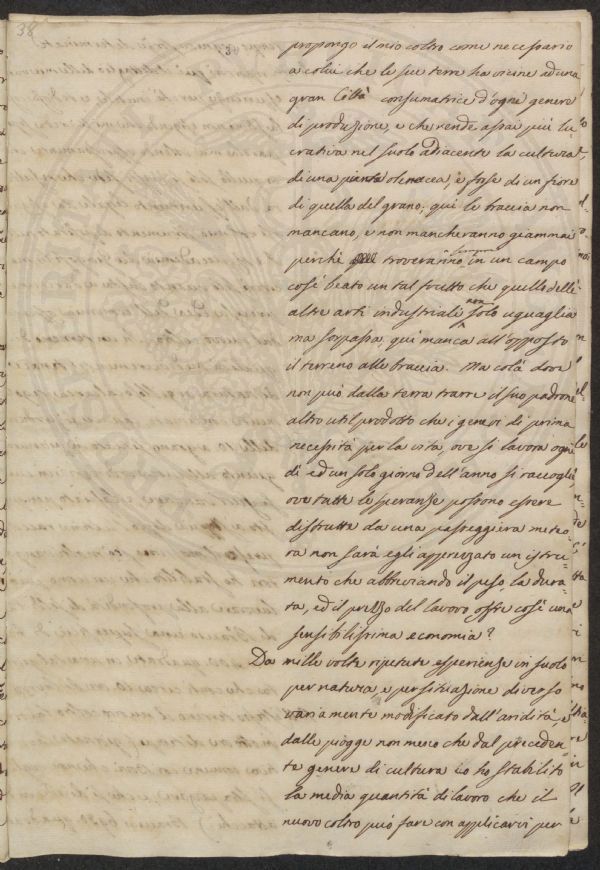 38
3
propongo il mio coltro come necessario
a colui che le sue terre ha vicine ad una
gran Città consumatrice d'ogni genere
di produzione, e che rende assai più lu
crativa nel suolo adiacente la cultura
di una pianta olenacea, e forse di un fiore
di quella del grano; qui le braccia non
mancano, e non mancheranno giammai
perchè troveranno sempre in un campo
così beato un tal frutto che quello delle
altre arti industriali non solo uguaglia
ma sorpassa, qui manca all'opposto
il terreno alle braccia. Ma colà dove
non può dalla terra trarre il suo padrone
altro util prodotto che i generi di prima
necessità per la vita, ove si lavora ogni
dì ed un solo giorno dell'anno si raccoglie
ove tutte le speranze possono essere
distrutte da una passeggiera meteo=
ra non sarà egli apprezzato un istru=
mento che abbreviando il peso, la dura=
ta, ed il prezzo del lavoro offre così una
sensibilissima economia?
Da mille volte ripetute esperienze in suolo
per natura, e per situazione diverso
variamente modificato dall'aridità, e
dalle piogge non meno che dal preceden=
te genere di cultura io ho stabilito
la media quantità di lavoro che il
nuovo coltro può fare con applicarvi per